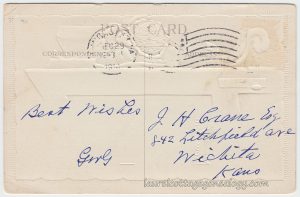 POST CARD
CORRESPONDENCE
DEC 29
Best Wishes
J H Crane Esq
842 Litchfield ave
Wichita
Kans
laurelcottagegenealogy.com